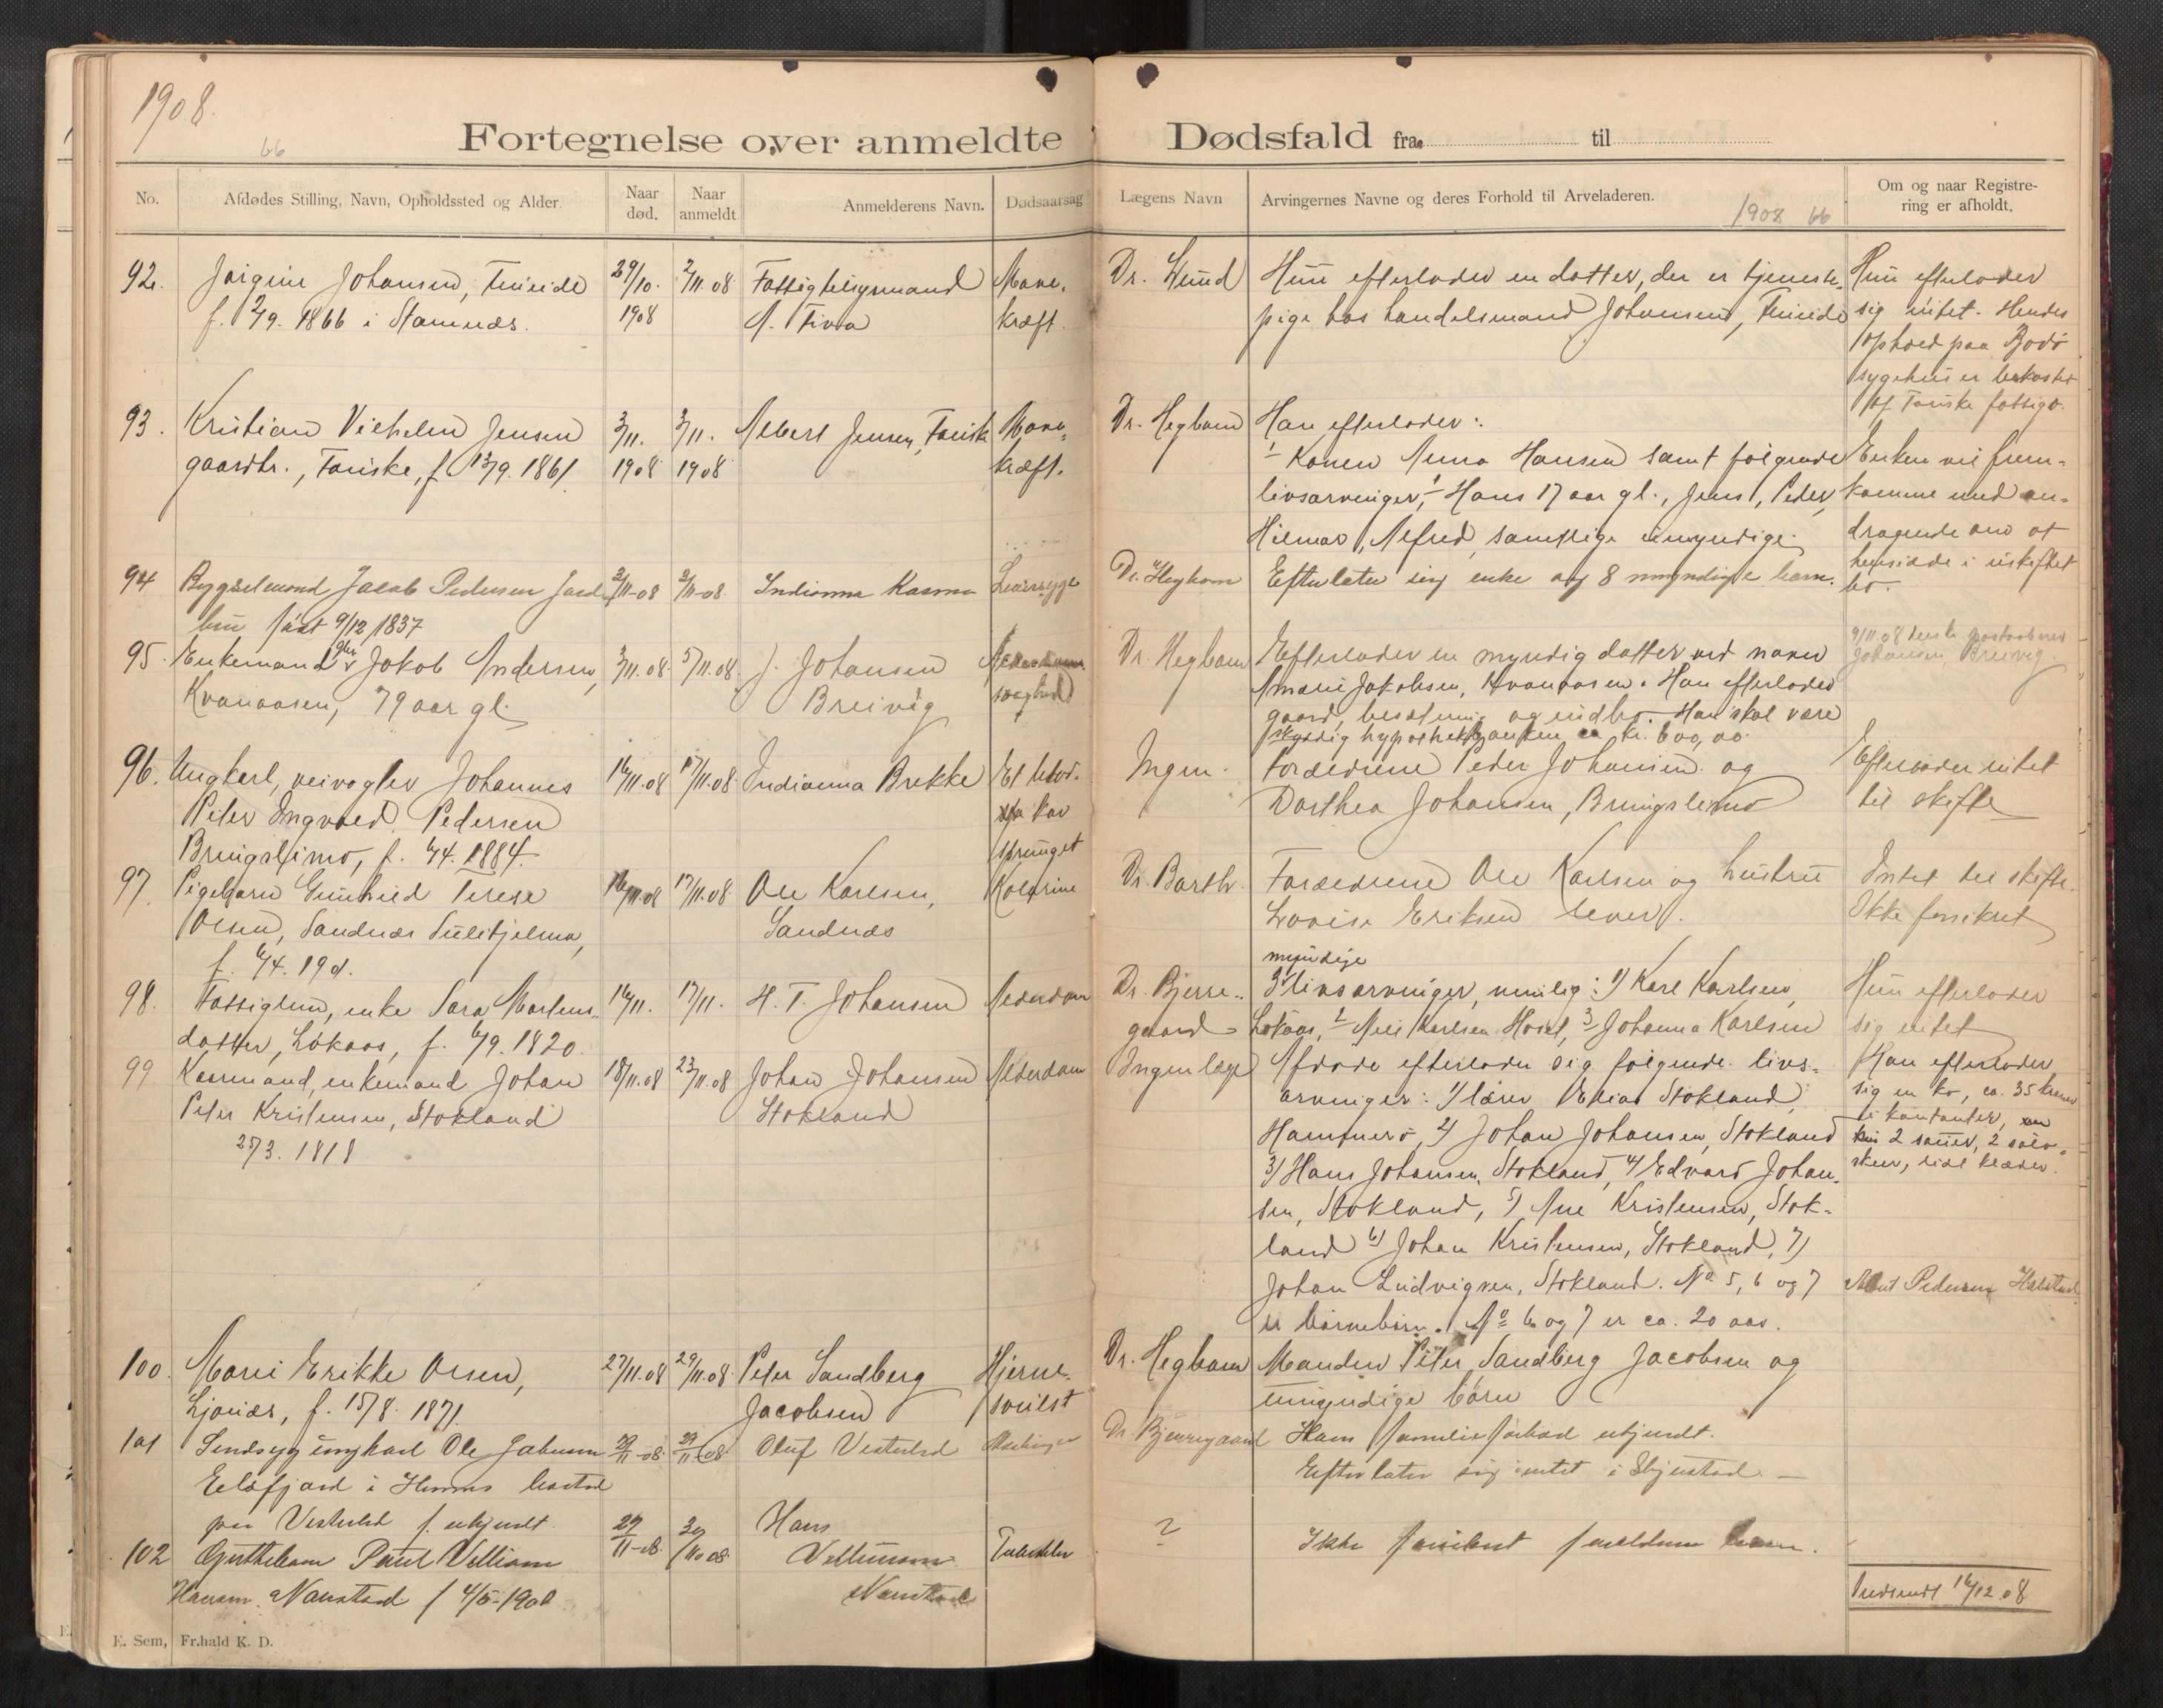 1908.
66
Fortegnelse over anmeldte Dødsfald fra til
No.
Afdødes Stilling, Navn, Opholdssted og Alder.
Naar død.
Naar anmeldt.
Anmelderens Navn.
Dødsaarsag
Lægens Navn
Arvingernes Navne og deres Forhold til Arveladeren.
1908 66
Om og naar Registre-
ring er afholdt.
92. Jørgine Johansen, Fineide
f. 2/9. 1866 i Stamnes.
29/10. 1908
2/11.08
Fattigtilsynsmand
A. Tivia
Mave-
kræft.
Dr. Lund
Hun efterlader en datter, der er tjeneste-
pige hos handelsmand Johansen, Fineide
Hun efterlader
sig intet. Hendes
ophold paa Bodø
sygehus er bekostet
af Fauske fattigv.
93. Kristian Vilhelm Jensen
gaardbr., Fauske, f. 13/9. 1861
3/11. 1908
3/11. 1908
Albert Jensen, Fauske
Mave-
kræft.
Dr. Hegbom
Han efterlader:
Konen Anna Hansen samt følgende
livsarvinger, Hans 17 aar gl., Jens, Peder,
Hilmar, Alfred, samtlige umyndige.
Enken vil frem-
komme med an-
dragende om at
hensidde i uskiftet
bo.
94 Bygselmand Jacob Pedersen
født 9/12 1837
2/11-08
3/11-08
Indianna Kosmo
Leversyge
Dr. Hegbom
Efterlater sig enke og 8 umyndige barn.
95. Enkemand gbr Jakob Andersen,
Kvanaasen, 79 aar gl.
3/11.08
5/11.08
J. Johansen
Breivig
Alderdoms
svaghed
Dr. Hegbom
Efterlader en myndig datter ved navn
Amarie Jakobsen, Kvanaasen. Han efterlader
gaard, besætning og indbo. Han skal være
skyldig hypothekbanken ca kr. 600,00.
9/11.08
Johansen, Breivig
96. Ungkarl, veivogter Johannes
Peter Ingvald Pedersen
Bringslimo, f. 4/4. 1884.
16/11.08
17/11.08
Indianna Brekke
Et blod-
kar
sprunget
Ingen.
Forældrene Peder Johansen og
Dorthea Johansen, Bringslimo
Efterlader intet
til skifte
97. Pigebarn Gunhild Terese
Olsen, Sandnes Sulitjelma,
f. 6/4. 190.
16/11.08
17/11.08
Ole Karlsen,
Sandnes
Kolerine
Dr. Barth.
Forældrene Ole Karlsen og hustru
Lovise Eriksen lever.
Intet til skifte.
Ikke forsikret
98. Fattiglem, enke Sara Mortens-
datter, Løkaas, f. 6/9. 1820.
16/11.
17/11.
H. T. Johansen
Alderdom
Dr. Bjerre-
gaard
myndige
3 livsarvinger, nemlig: 1) Karl Karlsen,
Løkaas, 2 Nils Karlsen Hosel, 3 Johanna Karlsen
Hun efterlader
sig intet
99 Kaarmand, enkemand Johan
Peter Kristensen, Stokland
25/3. 1818
18/11.08
23/11.08
Johan Johansen
Stokland
Alderdom
Ingen læge
Afdøde efterlader sig følgende livs-
arvinger: 1) lærer Elias Stokland,
Hammerø, 2) Johan Johansen, Stokland
3) Hans Johansen, Stokland, 4) Edvard Johan-
sen, Stokland, 5) Ane Kristensen, Stok-
land 6) Johan Kristensen, Stokland, 7)
Johan Ludvigsen, Stokland. No 5, 6 og 7
er børnebørn. No 6 og 7 er ca. 20 aar.
Han efterlader
sig en ko, ca. 35 kroner
i kontanter,
2 sauer, 2 sølv-
skeer, lidt klæder.
Pedersen
100. Marie Erikke Olsen,
Ljønes, f. 15/8. 1871.
27/11.08
29/11.08
Peter Sandberg
Jacobsen
Hjerne-
svulst
Dr. Hegbom
Manden Peter Sandberg Jacobsen og
umyndige børn
101 Sindsyg ungkarl Ole Jakobsen
i
paa f. ukjendt.
29/11-08
29/11-08
Oluf
Dr. Bjerregaard
Hans familieforhold ukjendt.
Efterlater sig intet i Skjerstad.
102 Guttebarn Paul Villiam
Hansen. Naurstad f 4/5-1908
29/11-08
30/11 08
Hans
Naurstad
Tuberkler
?
Ikke forsikret
Indsendt 16/12.08
E. Sem, Fr.hald K. D.